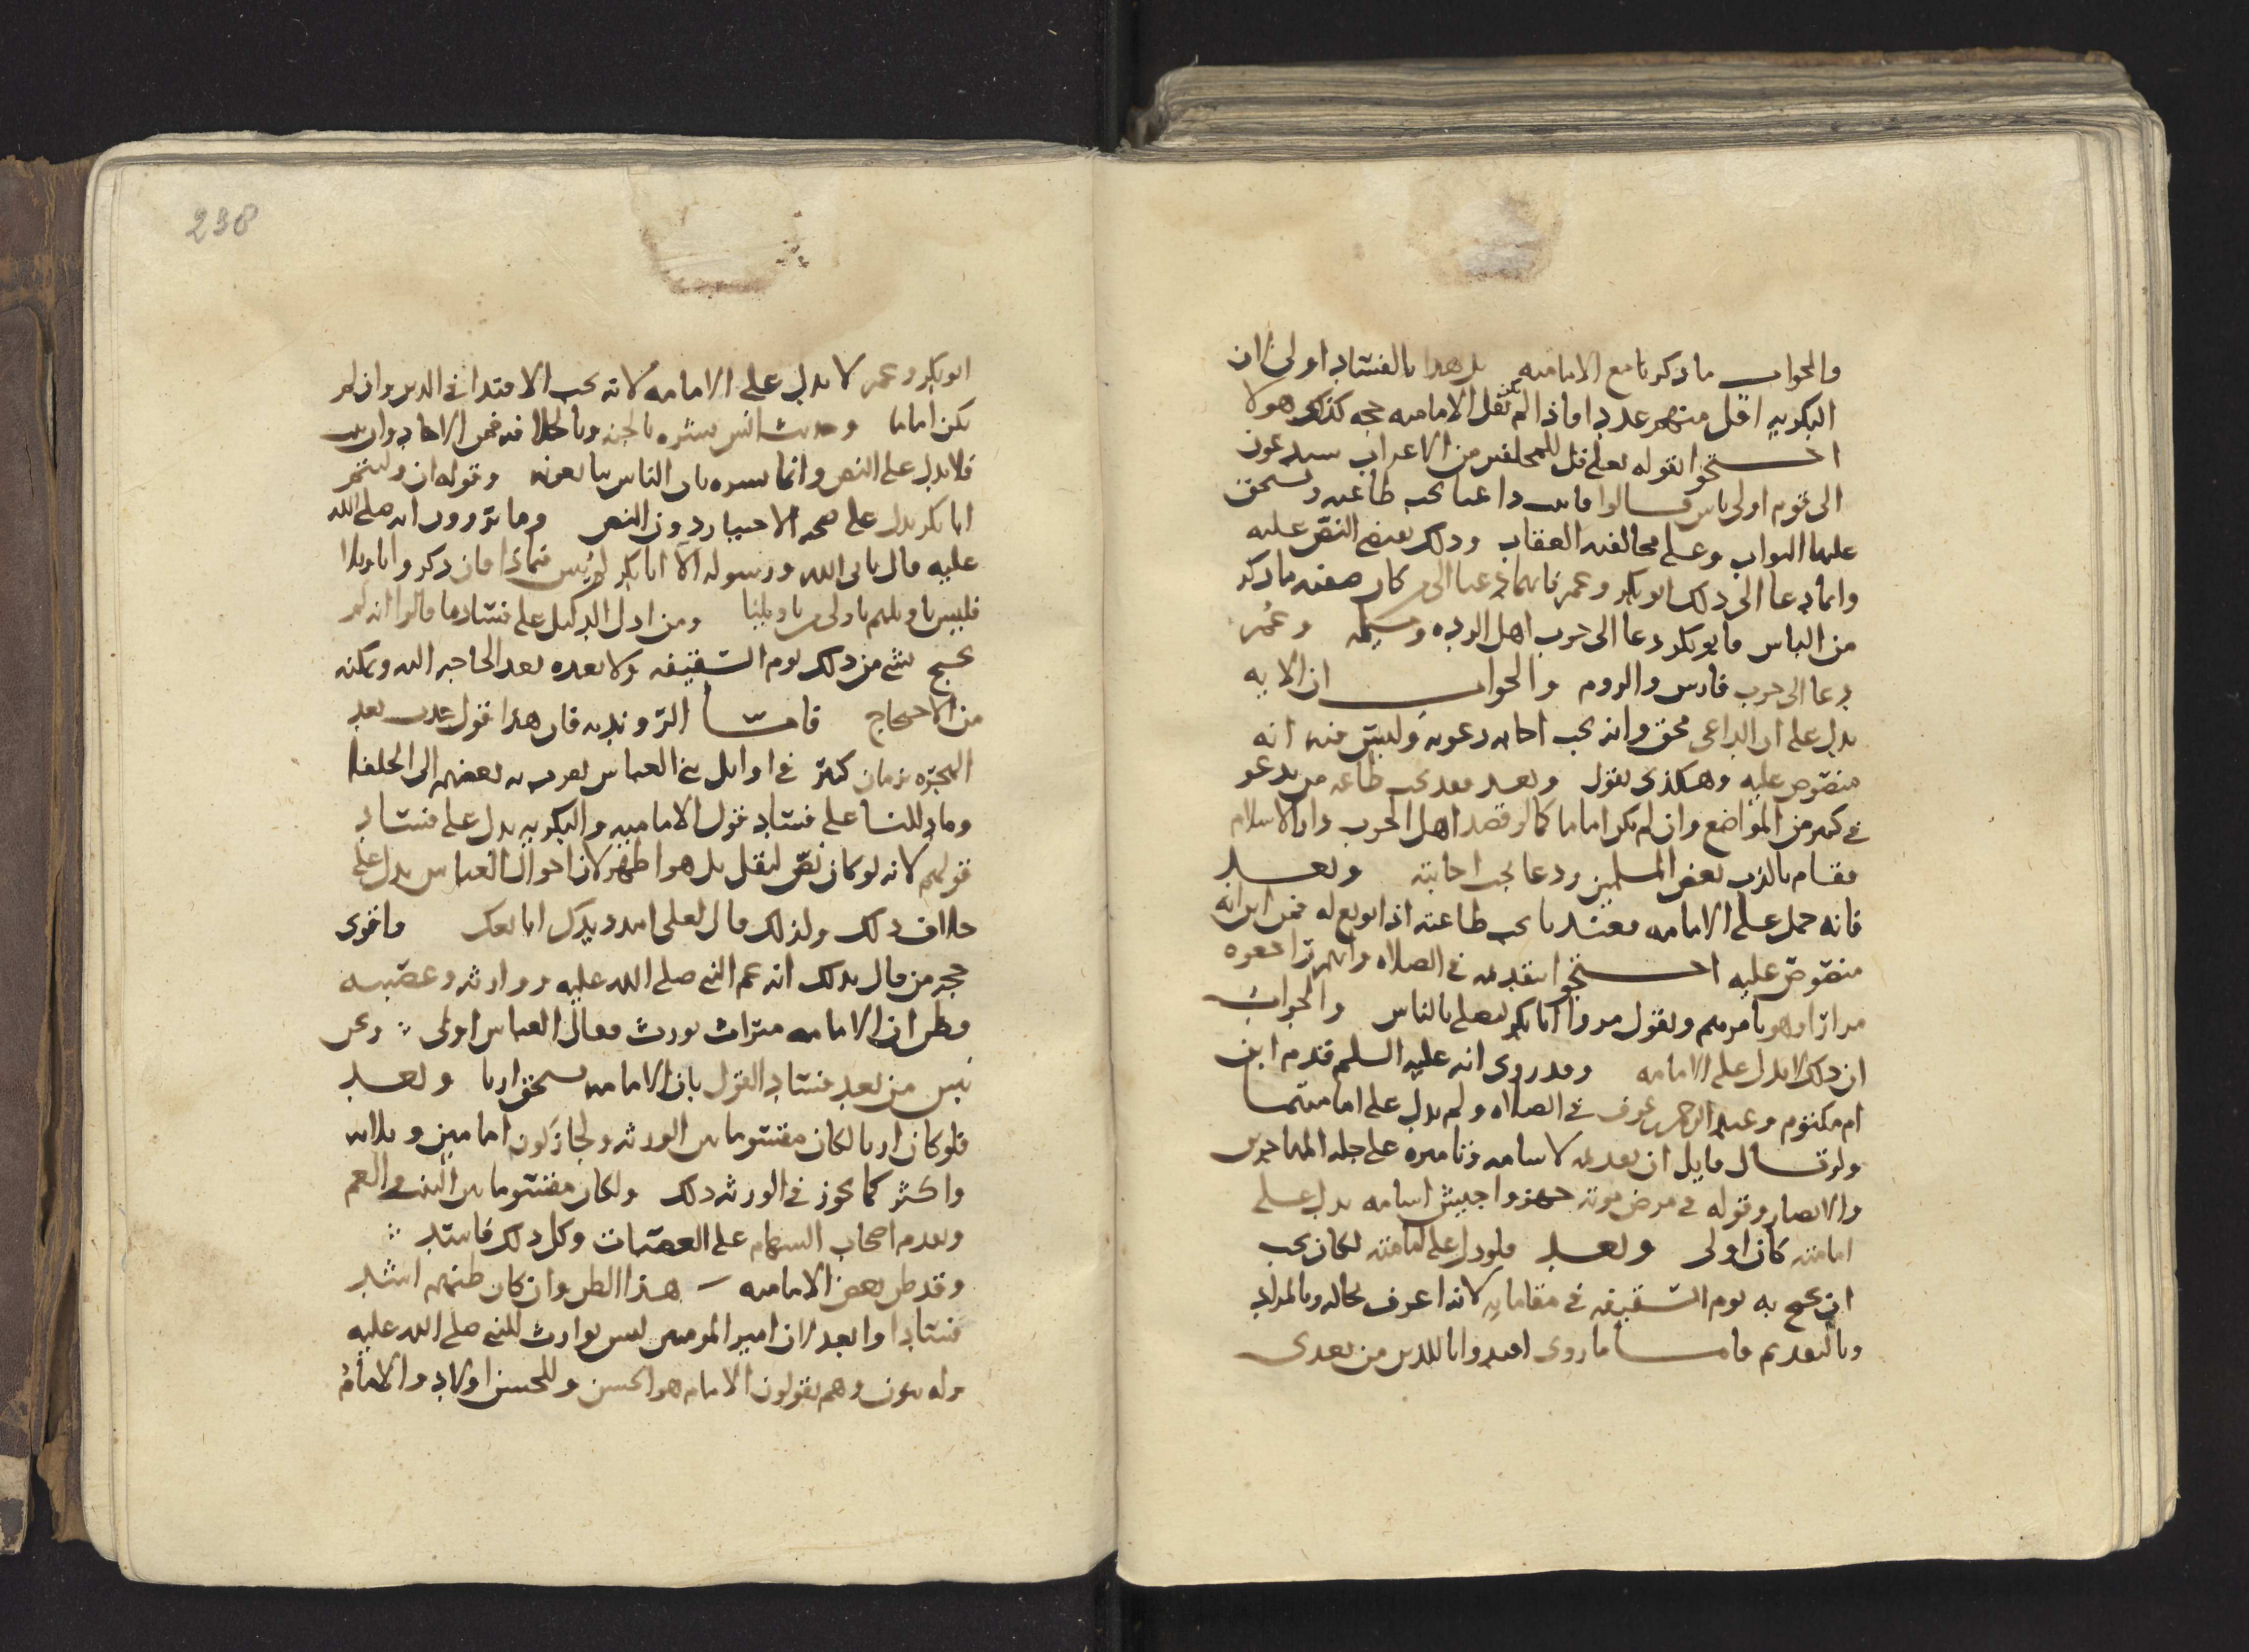 والجواب ما ذكرنا مع الامامية بل هذا بالفساد اولى لان
البكرية اقل منهم عددا واذا لم نقل الامامية حجة كذلك هولا
احتجوا بقوله تعلى قل للمخلفين من الاعراب ستدعون
الى قوم اولى باس قالوا فاثبت داعيا يجب طاعته ويستحق
عليها الثواب وعلى مخالفته العقاب وذلك يقتضي النص عليه
وانما دعا الى ذلك ابو بكر وعمر فانهما دعيا الى من كان صفته ما ذكر
من الباس فابو بكر دعا الى حرب اهل الردة ومسيلمة وعمر
دعا الى حرب فارس والروم والجواب ان الاية
يدل على ان الداعي محق وانه يجب اجابة دعوته وليس فيه انه
منصوص عليه وهكذى نقول وبعد فقد يجب طاعة من يدعو
في كثير من المواضع وان لم يكن اماما كما لو قصد اهل الحرب دار الاسلام
فقام بالذب بعض المسلمين ودعا يجب اجابته وبعد
فانه حمل على الامامة فعندنا يجب طاعته اذا بويع له فمن اين انه
منصوص عليه احتجوا بتقديمه في الصلاة وانهم راجعوه
مرارا وهو يامرهم ويقول مروا ابا بكر ليصلي بالناس والجواب
ان ذلك لا يدل على الامامة وقد روى انه عليه السلم قدم ابن
ام مكتوم وعبد الرحمن بن عوف في الصلاة ولم يدل على امامتهما
ولو قال قايل ان تقديمه لاسامة وتاميره على جلة المهاجرين
والانصار وقوله في مرض موته جهزوا جيش اسامة يدل على
امامته كان اولى وبعد فلو دل على امامته لكان يجب
ان يحتج به يوم السقيفة في مقاماته لانه اعرف بحاله وبالمراد
وبالتقديم فاما ما روى اقتدوا باللذين من بعدي
238
ابو بكر وعمر لا يدل على الامامة لانه يجب الاقتدا في الدين وان لم
يكن اماما وحديث انس بشره بالجنة وبالخلافة فمن الاحاد وان ثبت
فلا يدل على النص وانما بشره بان الناس يبايعونه وقوله ان وليتم
ابا بكر يدل على صحة الاختيار دون النص وما يروون انه صلى الله
عليه قال يابى الله ورسوله الا ابا بكر فان ذكروا تاويلا
فليس تاويلهم باولى من تاويلنا ومن ادل الدليل على فساد ما قالوا انه لم
يحتج بشي من ذلك يوم السقيفة ولا بعده بعد الحاجة اليه وتمكنه
من الاحتجاج فاما الروندية فان هذا قول حدث بعد
الهجرة بزمان كثير في اوايل بني العباس تقرب به بعضهم الى الخلفا
وما دللنا على فساد قول الامامية والبكرية يدل على فساد
قولهم لانه لو كان نص لنقل بل هو اظهر لان احوال العباس يدل على
خلاف ذلك ولذلك قال لعلي امدد يدك ابايعك واقوى
حجة من قال بذلك انه عم النبي صلى الله عليه ووارثه وعصبته
فظن ان الامامة ميراث يورث فقال العباس اولى ونحن
نبين من بعد فساد القول بان الامامة يستحق ارثا وبعد
فلو كان ارثا لكان مقسوما بين الورثة ولجاز كون امامين وثلاثة
واكثر كما يجوز في الورثة ذلك ولكان مقسوما بين البنت والعم
وتقدم اصحاب السهام على العصبات وكل ذلك فاسد
وقد ظن بعض الامامية هذا الظن وان كان ظنهم اشد
فسادا وابعد لان امير المومنين ليس بوارث للنبي صلى الله عليه
وله بنون وهم يقولون الامام هو الحسن وللحسن اولاد والامام